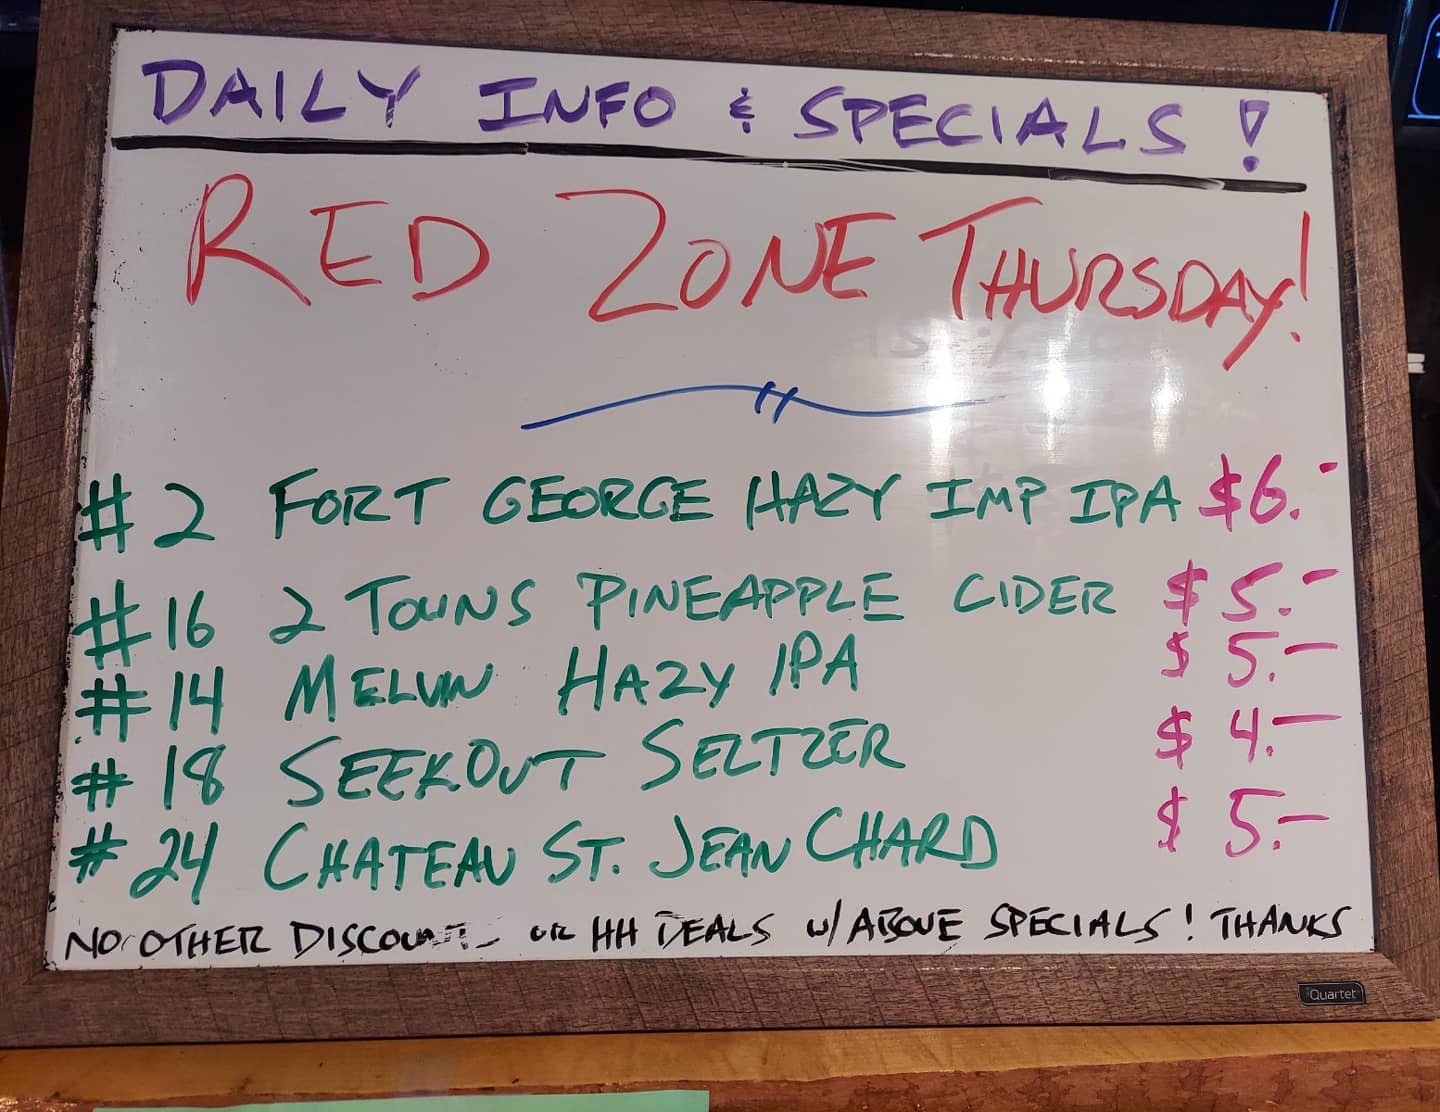 DAILY INFO & SPECIALS !
RED ZONE THURSDAY!
#2 FORT GEORGE HAZY IMP IPA $6.-
#16 2 TOWNS PINEAPPLE CIDER $5.-
#14 MELVIN HAZY IPA $5.-
#18 SEEKOUT SELTZER $4.-
#24 CHATEAU ST. JEAN CHARD $5.-
NO OTHER DISCOUNTS OR HH DEALS W/ ABOVE SPECIALS! THANKS
Quartet